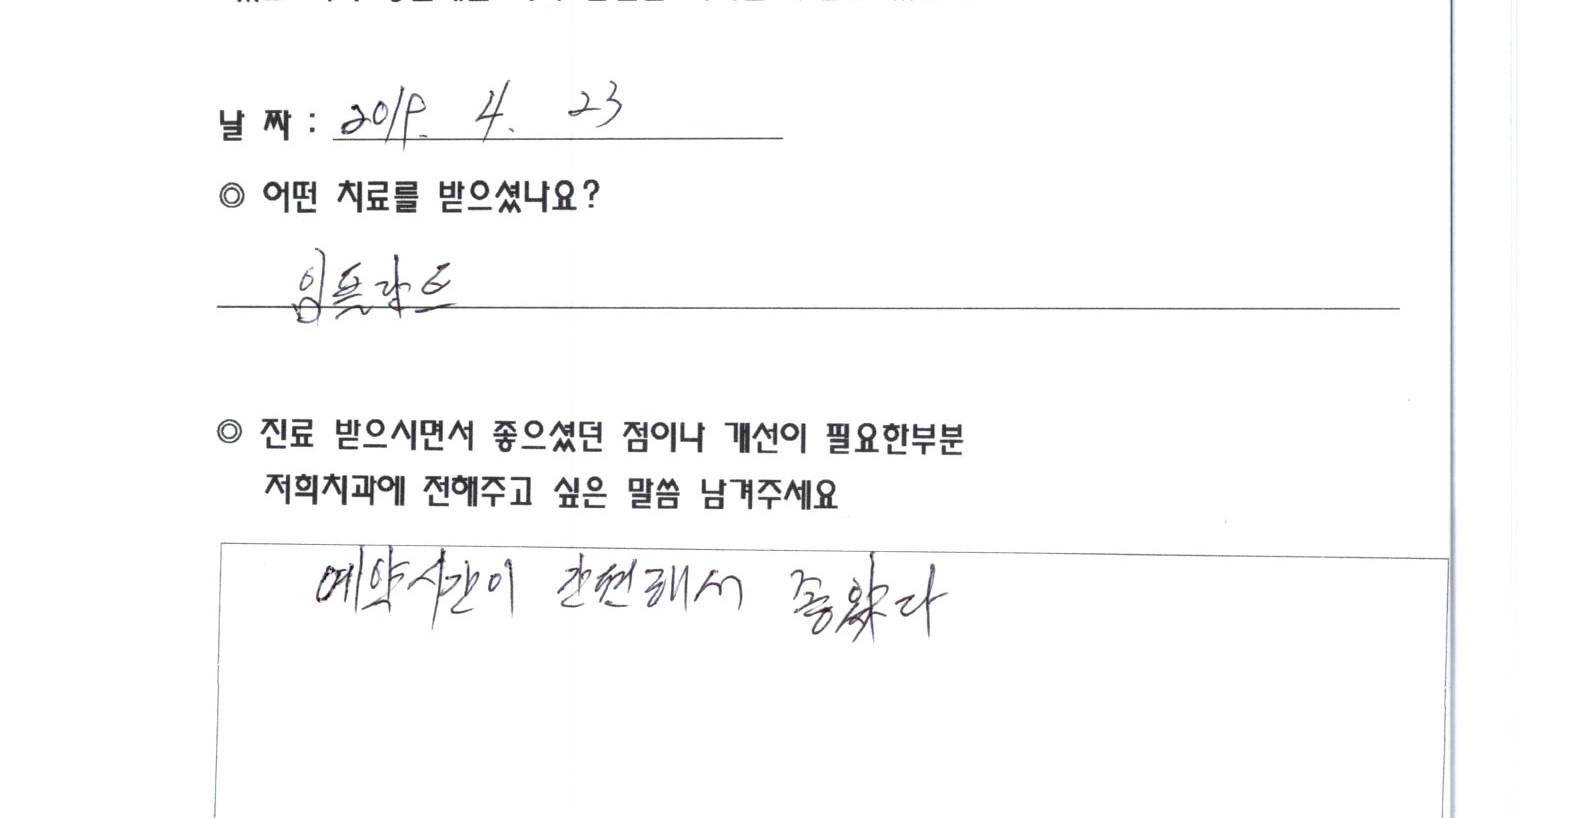 날 짜 : 2019. 4. 23
◎ 어떤 치료를 받으셨나요?
임프란트
◎ 진료 받으시면서 좋으셨던 점이나 개선이 필요한부분
저희치과에 전해주고 싶은 말씀 남겨주세요
예약시간이 간편해서 좋았다